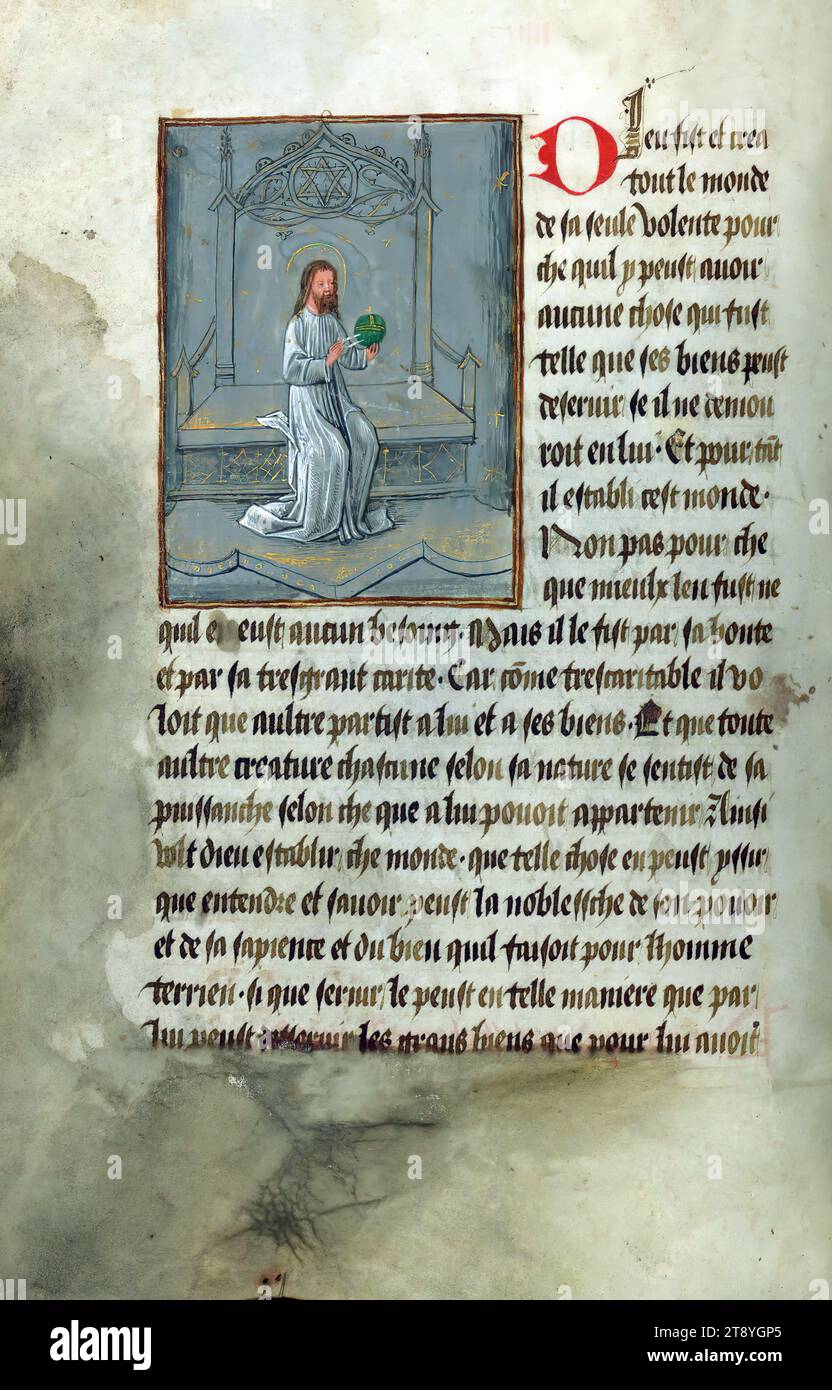 DIeu fist et crea
tout le monde
de sa seule volente pour
che quil y peust auoir
aucune chose qui fust
telle que ses biens peust
deseruir se il ne demou
roit en lui. Et pour tāt
il establi cest monde.
Non pas pour che
que mieulx len fust ne
quil e eust aucun besoing. Mais il le fist par sa bonte
et par sa tresgrant carite. Car cōme trescaritable il vo
loit que aultre partist a lui et a ses biens. Et que toute
aultre creature chascune selon sa nature se sentist de sa
puissanche selon che que a lui pouoit appartenir. Ainsi
volt dieu establir che monde. que telle chose en peust yssir
que entendre et sauoir peust la noblessche de son pouoir
et de sa sapience et du bien quil faisoit pour lhomme
terrien. si que seruir le peust en telle maniere que par
lui peust les grans biens que pour lui auoit
alamy
Image ID: 2T8YGP5
www.alamy.com